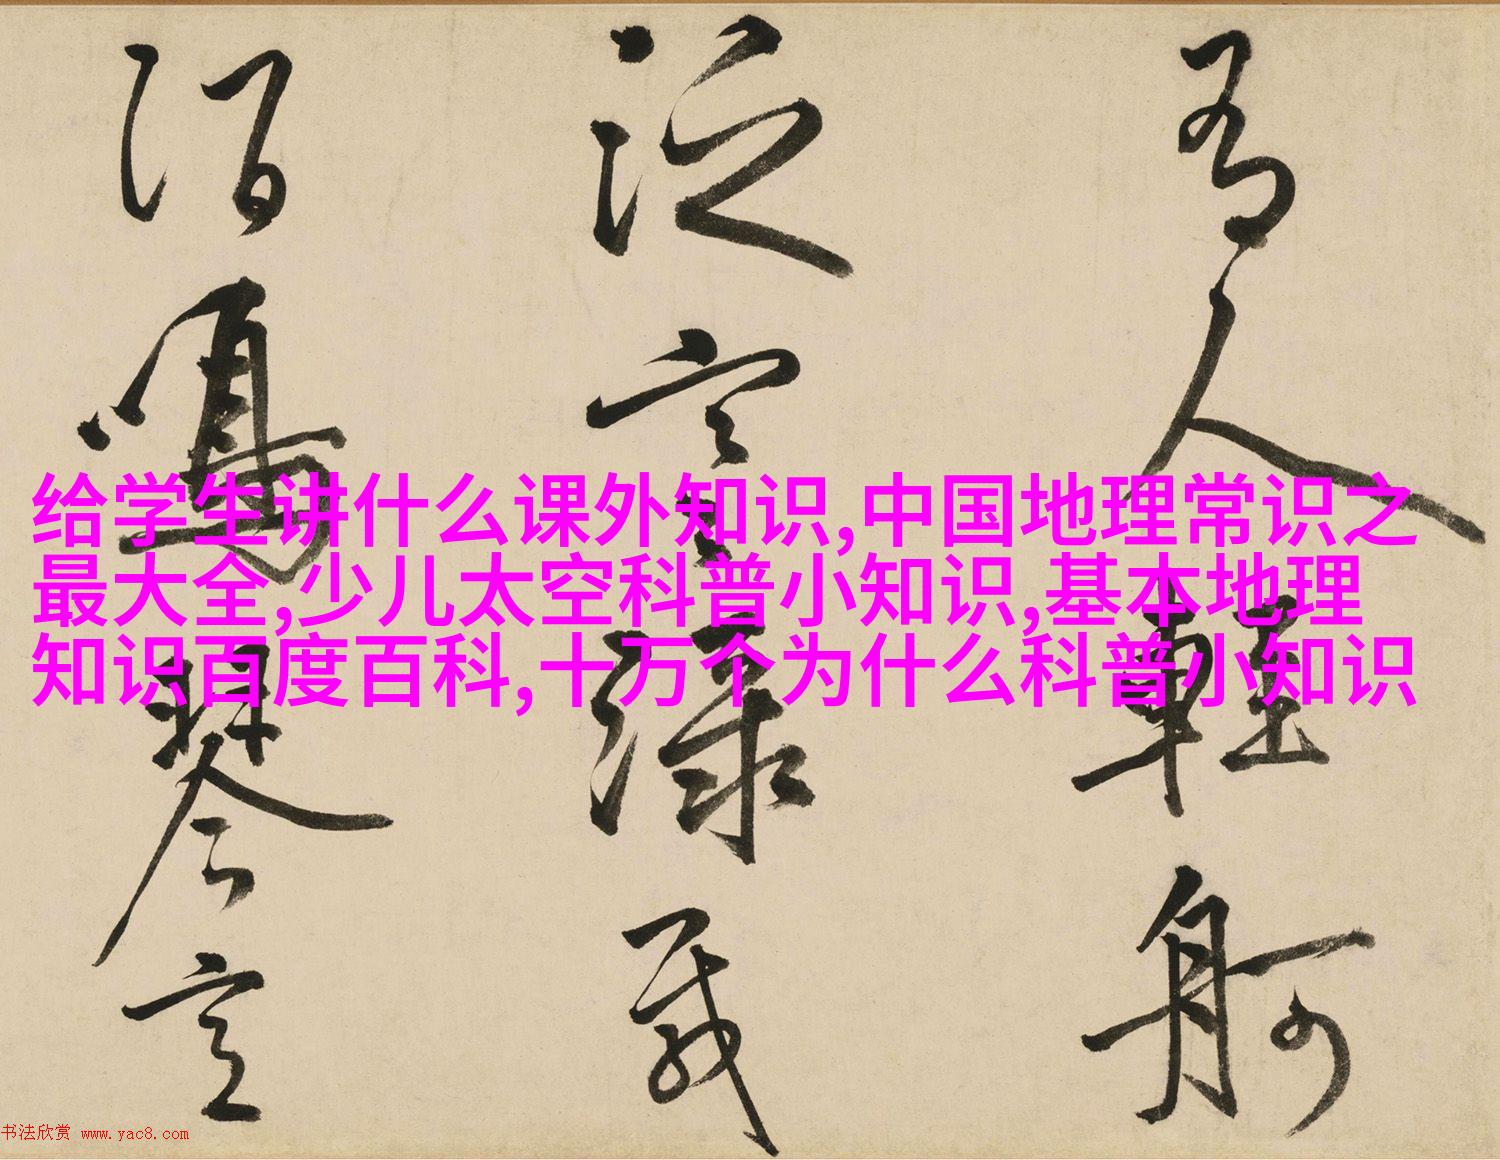 有人輕舸
泛空綠或
陌鳴琴宣
给学生讲什么课外知识,中国地理常识之
最大全,少儿太空科普小知识,基本地理
知识百度百科,十万个为什么科普小知识
书法欣赏 www.yac8.com